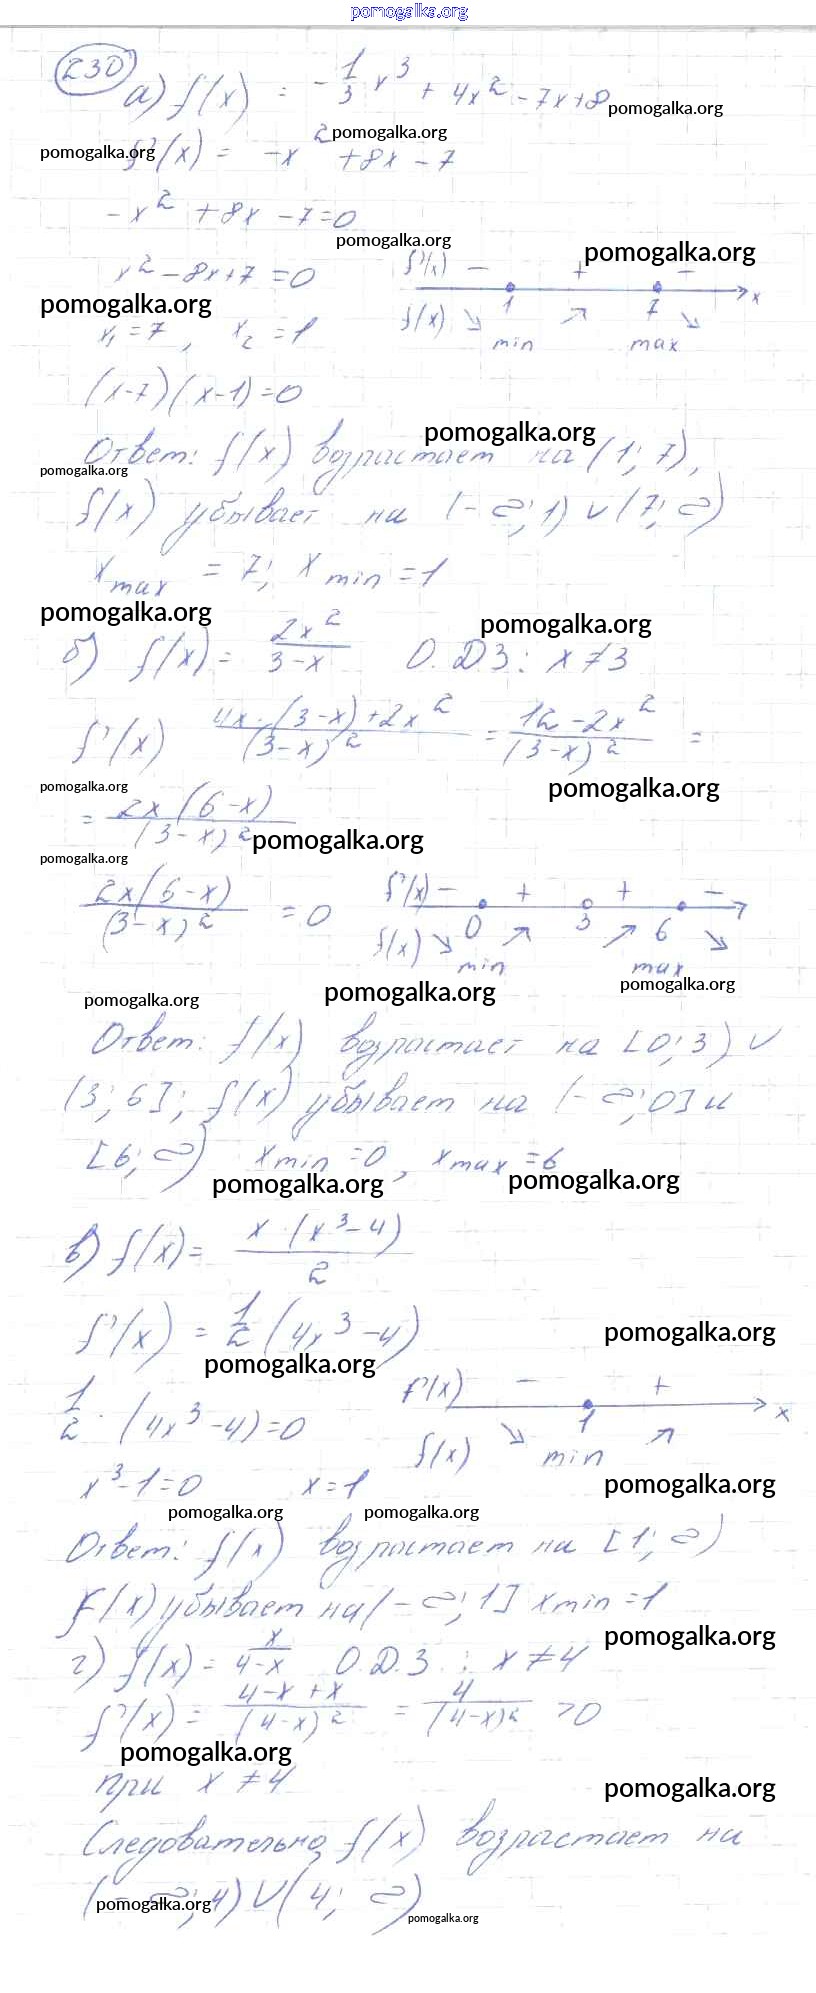 pomogalka.org
230
а) f(x) = -1/3 x³ + 4x² - 7x + 8
pomogalka.org
pomogalka.org
pomogalka.org
f'(x) = -x² + 8x - 7
-x² + 8x - 7 = 0
pomogalka.org
pomogalka.org
x² - 8x + 7 = 0
f'(x) - + -
1 7 x
pomogalka.org
x₁ = 7, x₂ = 1
f(x) ↘ min ↗ max ↘
(x-7)(x-1) = 0
pomogalka.org
Ответ: f(x) возрастает на (1; 7),
pomogalka.org
f(x) убывает на (-∞; 1) ∪ (7; ∞)
x max = 7; x min = 1
pomogalka.org
pomogalka.org
б) f(x) = 2x²/(3-x) О.Д.З: x ≠ 3
f'(x) (4x·(3-x)+2x²)/(3-x)² = (12-2x²)/(3-x)² =
pomogalka.org
pomogalka.org
= 2x(6-x)/(3-x)²
pomogalka.org
pomogalka.org
2x(6-x)/(3-x)² = 0
f'(x) - + + -
0 3 6
f(x) ↘ min ↗ ↗ max ↘
pomogalka.org
pomogalka.org
pomogalka.org
Ответ: f(x) возрастает на [0; 3) ∪
(3; 6]; f(x) убывает на (-∞; 0] и
[6; ∞) x min = 0, x max = 6
pomogalka.org
pomogalka.org
в) f(x) = x·(x³-4)/2
f'(x) = 1/2 (4x³-4)
pomogalka.org
pomogalka.org
1/2 · (4x³-4) = 0
f'(x) - +
1 x
f(x) ↘ min ↗
x³-1=0 x=1
pomogalka.org
pomogalka.org
pomogalka.org
Ответ: f(x) возрастает на [1; ∞)
f(x) убывает на (-∞; 1] x min = 1
pomogalka.org
г) f(x) = x/(4-x) О.Д.З. : x ≠ 4
f'(x) = (4-x+x)/(4-x)² = 4/(4-x)² >0
pomogalka.org
при x ≠ 4
pomogalka.org
Следовательно, f(x) возрастает на
(-∞; 4) ∪ (4; ∞)
pomogalka.org
pomogalka.org